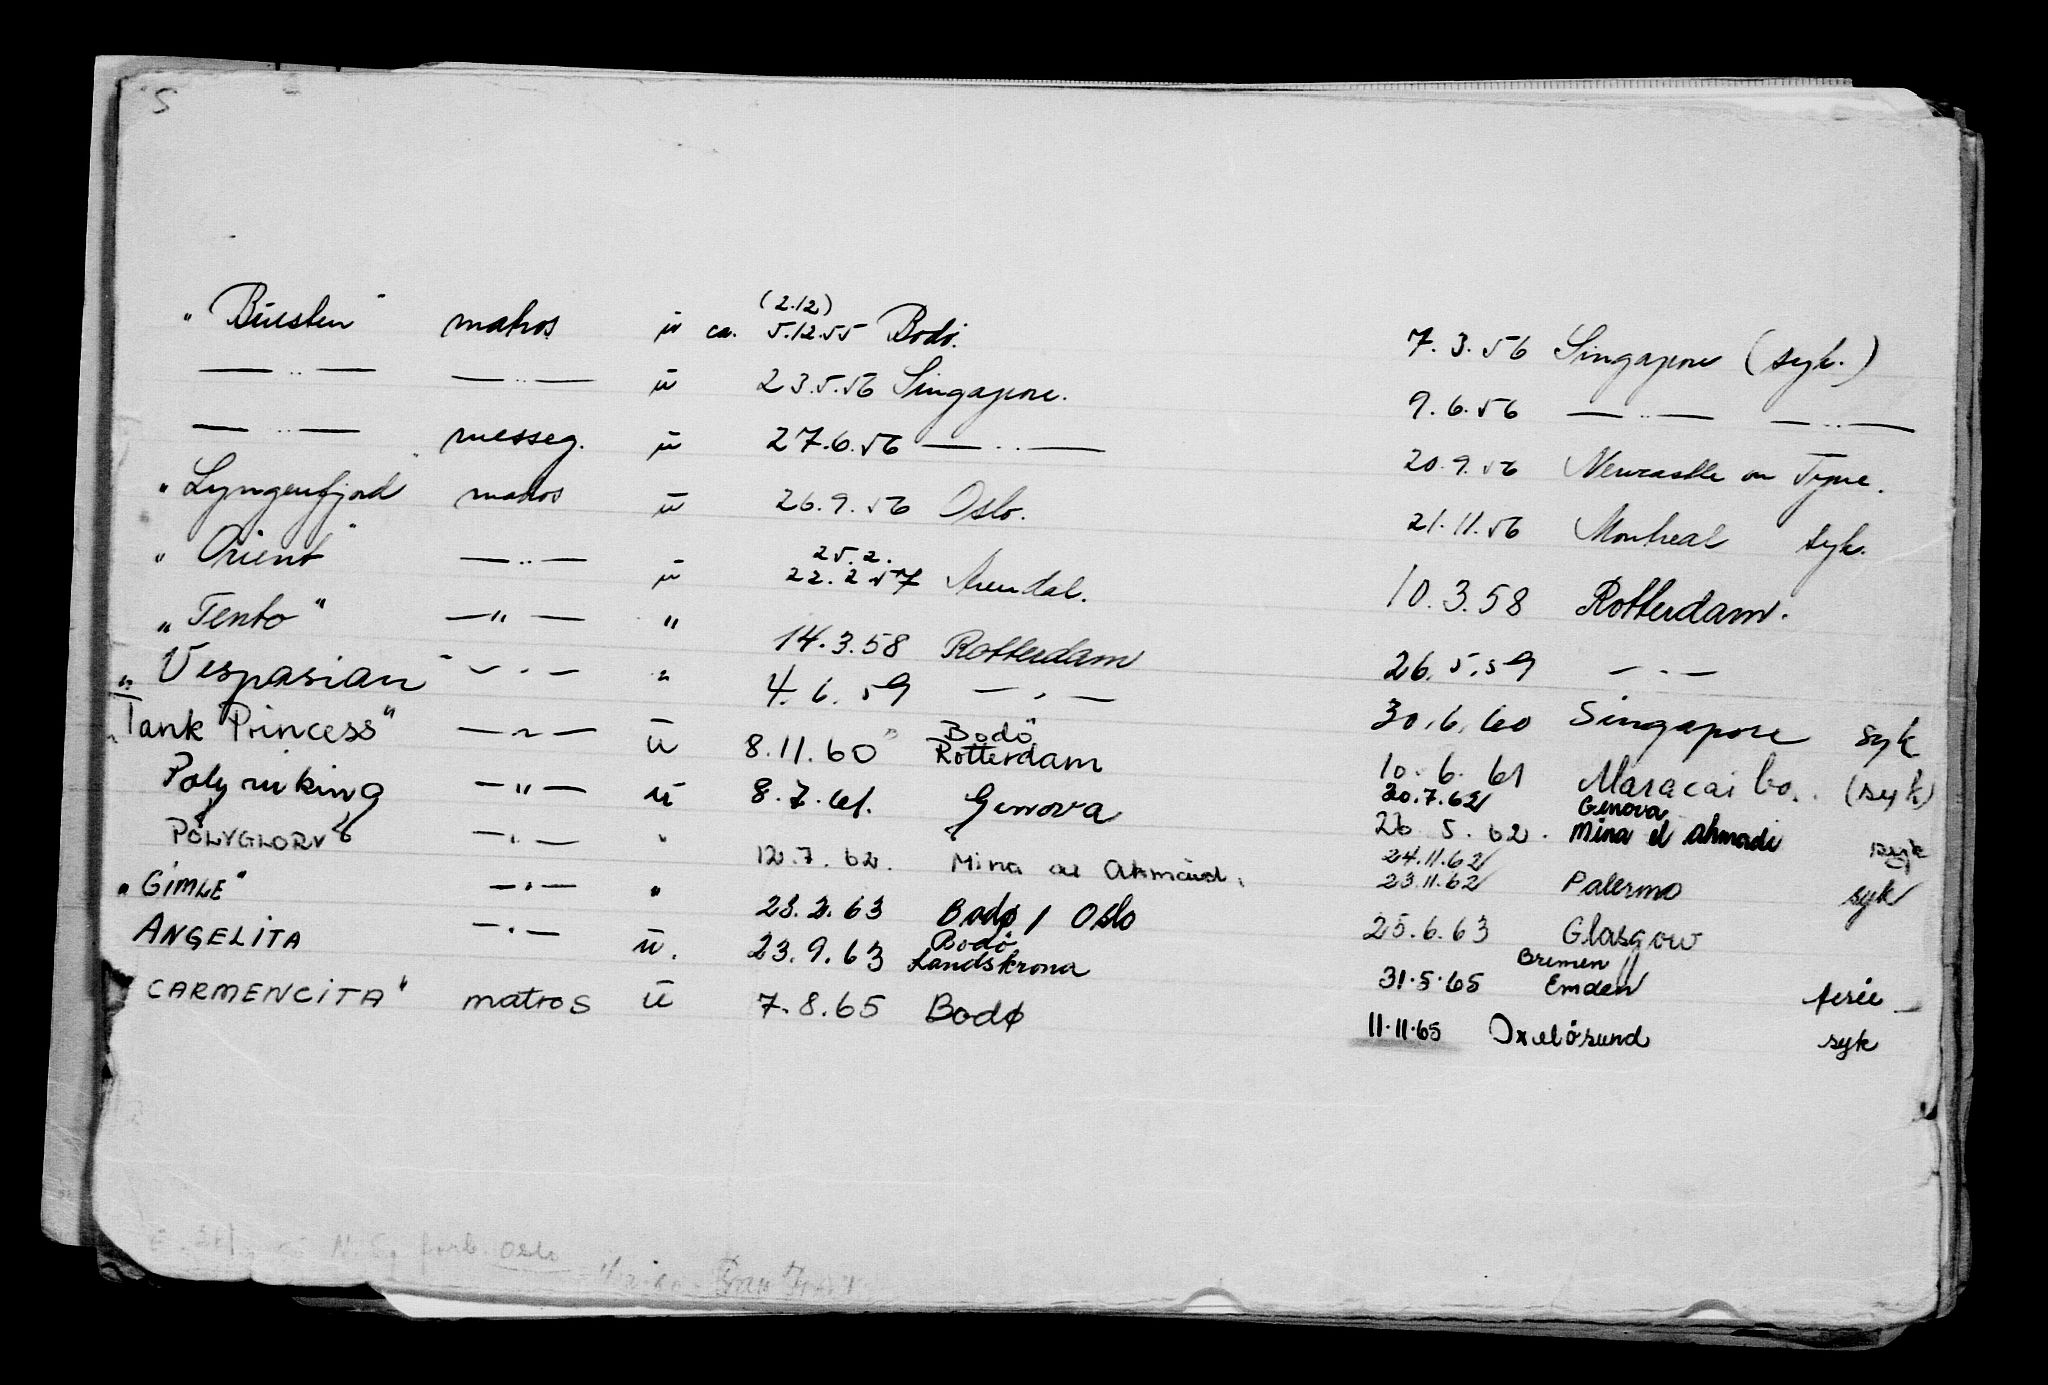 S
"Buesten" matros u ca. (2.12) 5.12.55 Bodø. 7.3.56 Singapore (syk.)
— " — — " — u 23.5.56 Singapore. 9.6.56 — " — — " —
— " — messeg. u 27.6.56 — " — 20.9.56 Newcastle on Tyne.
"Lyngenfjord" matros u 26.9.56 Oslo. 21.11.56 Montreal syk.
"Orient" — " — u 25.2. 22.2.57 Arendal. 10.3.58 Rotterdam.
"Tento" — " — " 14.3.58 Rotterdam 26.5.59 — " —
"Vespasian" — " — " 4.6.59 — " — 30.6.60 Singapore syk
"Tank Princess" — " — u 8.11.60 Bodö Rotterdam 10.6.61 Maracaibo. (syk)
Polyviking — " — u 8.7.61. Genova 30.7.62 Genova 26.5.62. Mina el Ahmadi syk
POLYGLORY — " — " 12.7.62. Mina al Ahmadi. 24.11.62 23.11.62 Palermo syk
"GIMLE" — " — " 28.2.63 Bodø / Oslo 25.6.63 Glasgow
ANGELITA — " — u. 23.9.63 Bodø Landskrona 31.5.65 Bremen Emden ferie
CARMENCITA" matros u 7.8.65 Bodø 11.11.65 Oxelösund syk
N. Sj. forb. Oslo